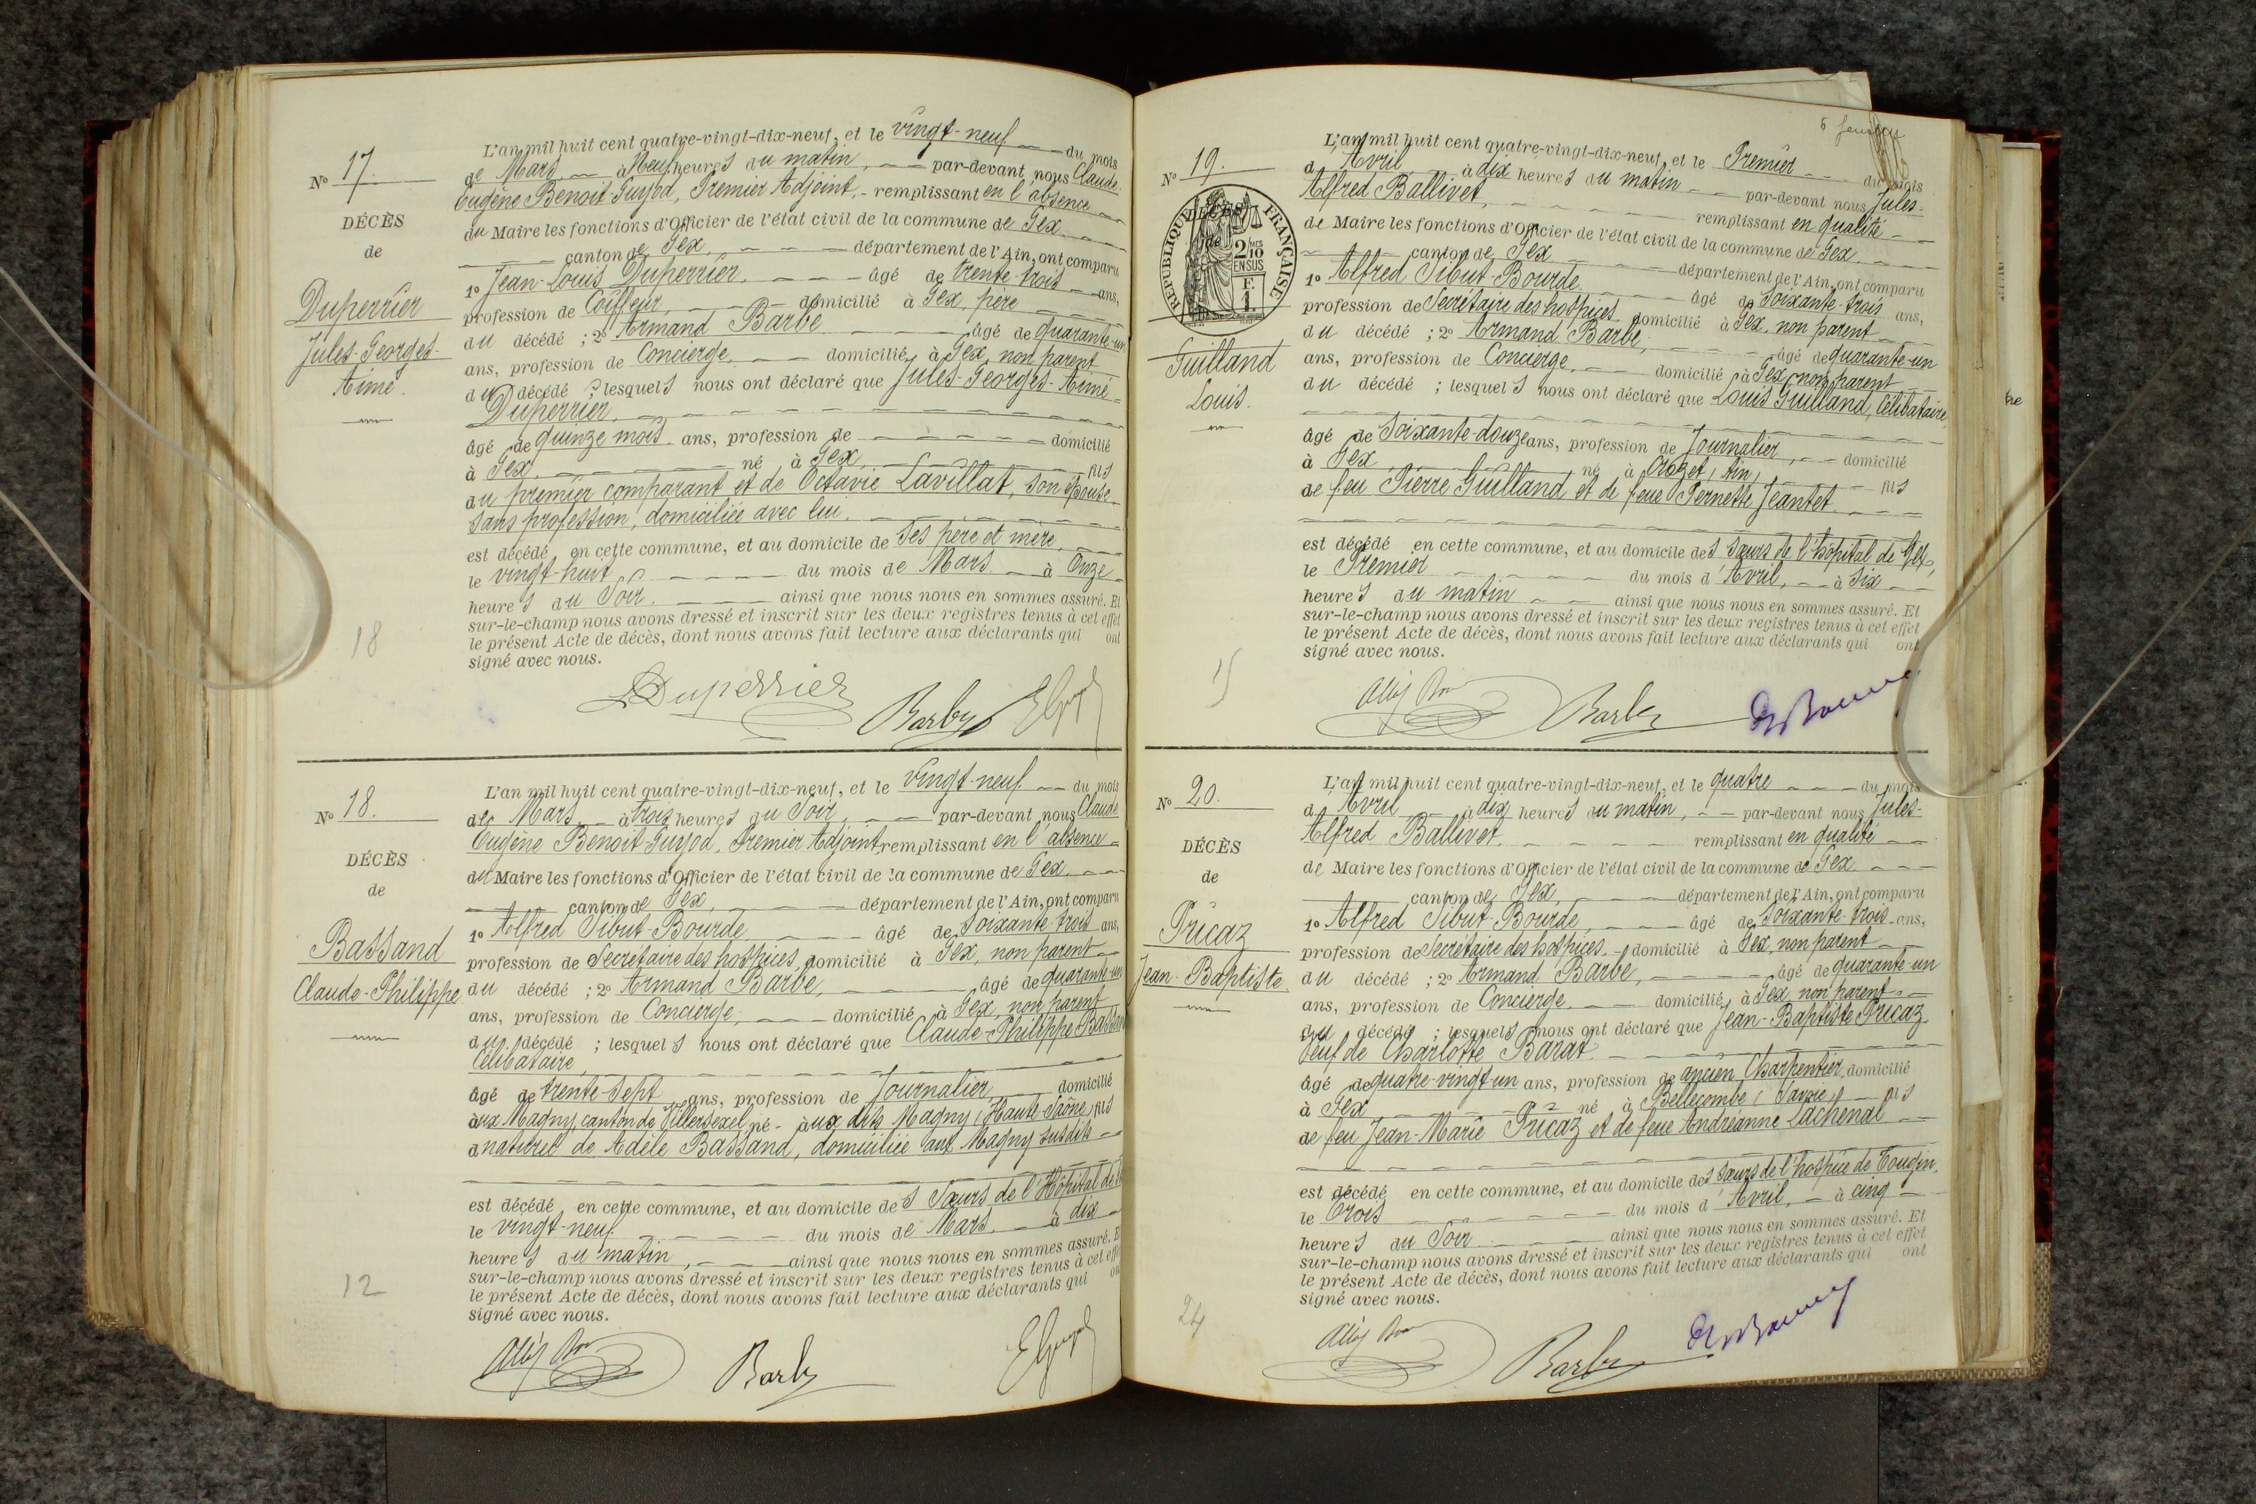 L'an mil huit cent quatre-vingt-dix-neuf, et le vingt-neuf du mois
de Mars à Neuf heures du matin, par-devant nous Claude-
Eugène Benoit-Guyod, Premier Adjoint, remplissant en l'absence
du Maire les fonctions d'Officier de l'état civil de la commune de Gex
canton de Gex, département de l'Ain, ont comparu
1º Jean-Louis Duperrier, âgé de trente-trois ans,
profession de Coiffeur, domicilié à Gex, père
du décédé ; 2º Armand Barbe âgé de quarante-un
ans, profession de Concierge, domicilié à Gex, non parent
du décédé ; lesquels nous ont déclaré que Jules-Georges-Aimé
Duperrier,
âgé de quinze mois ans, profession de domicilié
à Gex, né à Gex, fils
du premier comparant et de Octavie Lavillat, son épouse
sans profession, domiciliée avec lui.
est décédé en cette commune, et au domicile de ses père et mère,
le vingt-huit du mois de Mars à Onze
heures du Soir. ainsi que nous nous en sommes assuré. Et
sur-le-champ nous avons dressé et inscrit sur les deux registres tenus à cet effet
le présent Acte de décès, dont nous avons fait lecture aux déclarants qui ont
signé avec nous.
Nº 17.
DÉCÈS
de
Duperrier
Jules-Georges-
Aimé.
18
LDuperrier Barbe
L'an mil huit cent quatre-vingt-dix-neuf, et le vingt-neuf du mois
de Mars à trois heures du Soir, par-devant nous Claude
Eugène Benoit-Guyod, Premier Adjoint, remplissant en l'absence
du Maire les fonctions d'Officier de l'état civil de la commune de Gex
canton de Gex, département de l'Ain, ont comparu
1º Alfred Sibut-Bourde âgé de Soixante-trois ans,
profession de Secrétaire des hospices, domicilié à Gex, non parent
du décédé ; 2º Armand Barbe, âgé de quarante-un
ans, profession de Concierge, domicilié à Gex, non parent
du décédé ; lesquels nous ont déclaré que Claude-Philippe Bassand
Célibataire,
âgé de trente-Sept ans, profession de Journalier, domicilié
aux Magny, canton de Villersexel, né aux dits Magny (Haute-Saône) fils
naturel de Adèle Bassand, domiciliée aux Magny susdits
est décédé en cette commune, et au domicile des Sœurs de l'Hôpital de
le vingt-neuf du mois de Mars à dix
heures du matin, ainsi que nous nous en sommes assuré. Et
sur-le-champ nous avons dressé et inscrit sur les deux registres tenus à cet effet
le présent Acte de décès, dont nous avons fait lecture aux déclarants qui ont
signé avec nous.
Nº 18.
DÉCÈS
de
Bassand
Claude-Philippe
12
Barbe
L'an mil huit cent quatre-vingt-dix-neuf, et le Premier du mois
d'Avril à dix heures du matin par-devant nous Jules-
Alfred Ballivet, remplissant en qualité
de Maire les fonctions d'Officier de l'état civil de la commune de Gex
canton de Gex département de l'Ain, ont comparu
1º Alfred Sibut-Bourde âgé de Soixante-trois ans,
profession de Secrétaire des hospices domicilié à Gex, non parent
du décédé ; 2º Armand Barbe, âgé de quarante-un
ans, profession de Concierge, domicilié à Gex, non parent
du décédé ; lesquels nous ont déclaré que Louis Guilland, Célibataire,
âgé de Soixante-douze ans, profession de Journalier, domicilié
à Gex, né à Crozet (Ain) fils
de feu Pierre Guilland et de feue Pernette Jeantet
est décédé en cette commune, et au domicile des Sœurs de l'hôpital de Gex,
le Premier du mois d'Avril, à Six
heures du matin ainsi que nous nous en sommes assuré. Et
sur-le-champ nous avons dressé et inscrit sur les deux registres tenus à cet effet
le présent Acte de décès, dont nous avons fait lecture aux déclarants qui ont
signé avec nous.
Nº 19.
DÉCÈS
de
RÉPUBLIQUE FRANÇAISE
2/10
EN SUS
F.
1
Guilland
Louis.
15
Barbe
L'an mil huit cent quatre-vingt-dix-neuf, et le quatre du mois
d'Avril à dix heures du matin, par-devant nous Jules-
Alfred Ballivet remplissant en qualité
de Maire les fonctions d'Officier de l'état civil de la commune de Gex
canton de Gex, département de l'Ain, ont comparu
1º Alfred Sibut-Bourde, âgé de Soixante-trois ans,
profession de Secrétaire des hospices, domicilié à Gex, non parent
du décédé ; 2º Armand Barbe, âgé de quarante-un
ans, profession de Concierge domicilié à Gex, non parent
du décédé ; lesquels nous ont déclaré que Jean-Baptiste Pricaz
Veuf de Charlotte Barat
âgé de quatre-vingt-un ans, profession de ancien Charpentier, domicilié
à Gex né à Bellecombe (Savoie) fils
de feu Jean-Marie Pricaz et de feue Andréanne Lachenal
est décédé en cette commune, et au domicile des Sœurs de l'hospice de Tougin,
le Trois du mois d'Avril, à cinq
heures du Soir ainsi que nous nous en sommes assuré. Et
sur-le-champ nous avons dressé et inscrit sur les deux registres tenus à cet effet
le présent Acte de décès, dont nous avons fait lecture aux déclarants qui ont
signé avec nous.
Nº 20.
DÉCÈS
de
Pricaz
Jean-Baptiste
24
Barbe